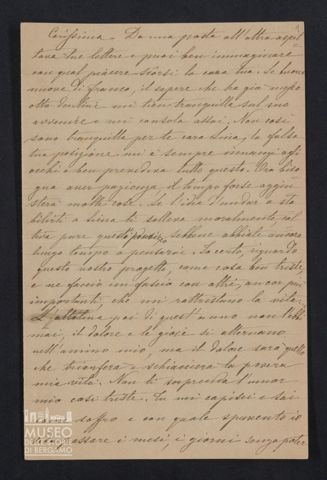 Carissima. Da una posta all'altra aspet
tava tue lettere e puoi ben immaginare
con qual piacere scorsi la cara tua. Le buone
nuove di Franco, il sapere che ha già
otto mi tien tranquilla sul suo
avvenire e mi consola assai. Non così
sono tranquilla per te cara mia, la falsa
tua posizione mi è sempre innanzi agli
occhi e ben prevedeva tutto questo. Ora biso
gna aver pazienza il tempo forse aggiu
sterà molte cose. Se l'idea d'andar a sta
bilirti a ti solleva moralmente col
tiva pure questo pensiero, sebbene abbiate ancora
lungo tempo a pensarvi. Io certo, riguardo
questo nostro progetto, come cosa ben triste
e ne faccio un fascio con altri, ancor più
importanti, che mi rattristano la vita.
poi di quest'anno non l'ebbi
mai, il dolore e le gioie si alternano
nell'animo mio, ma il dolore sarà quello
che e schiaccierà la povera
mia vita. Non ti sorprenda l'umor
mio così triste. Tu mi capisci e sai
come soffro e con quale spavento io
passare i mesi, i giorni senza poter
MUSEO
DELLE STORIE
DI BERGAMO